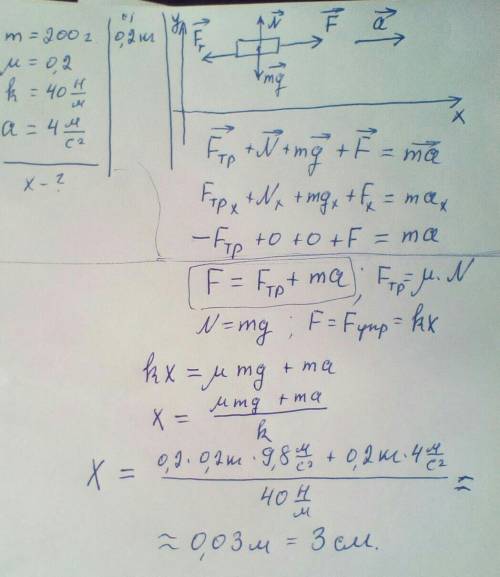 m = 200 г
СИ
0,2 кг
μ = 0,2
k = 40 Н/м
a = 4 м/с²
x - ?
y
F⃗т
N⃗
F⃗
a⃗
mg⃗
x
F⃗тр + N⃗ + mg⃗ + F⃗ = ma⃗
Fтрₓ + Nₓ + mgₓ + Fₓ = maₓ
-Fтр + 0 + 0 + F = ma
F = Fтр + ma ; Fтр = μ · N
N = mg ; F = Fупр = kx
kx = μmg + ma
x = (μmg + ma)/k
X = (0,2 · 0,2 кг · 9,8 м/с² + 0,2 кг · 4 м/с²)/(40 Н/м) ≈
≈ 0,03 м = 3 см.